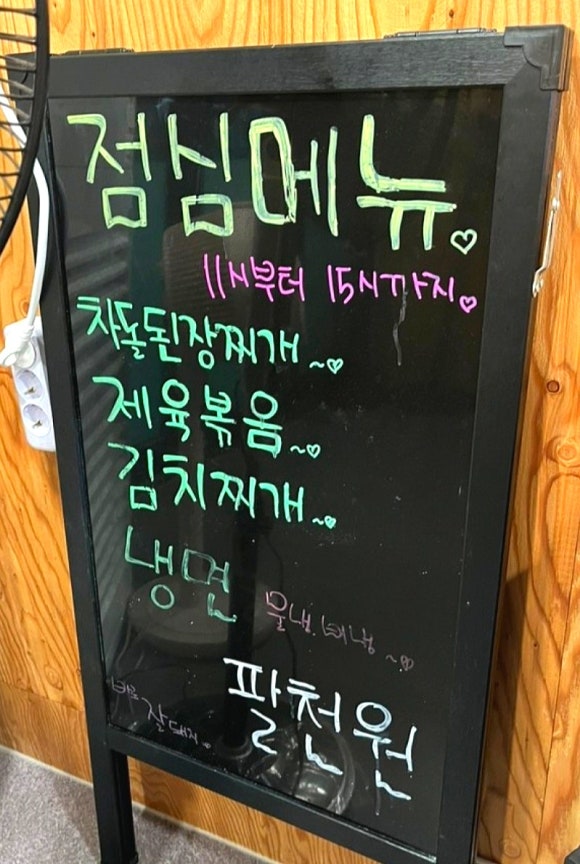 점심메뉴♡
11시부터 15시까지♡
차돌된장찌개~♡
제육볶음~♡
김치찌개~♡
냉면 물냉, 비냉~♡
팔천원
바로 잘돼지♡